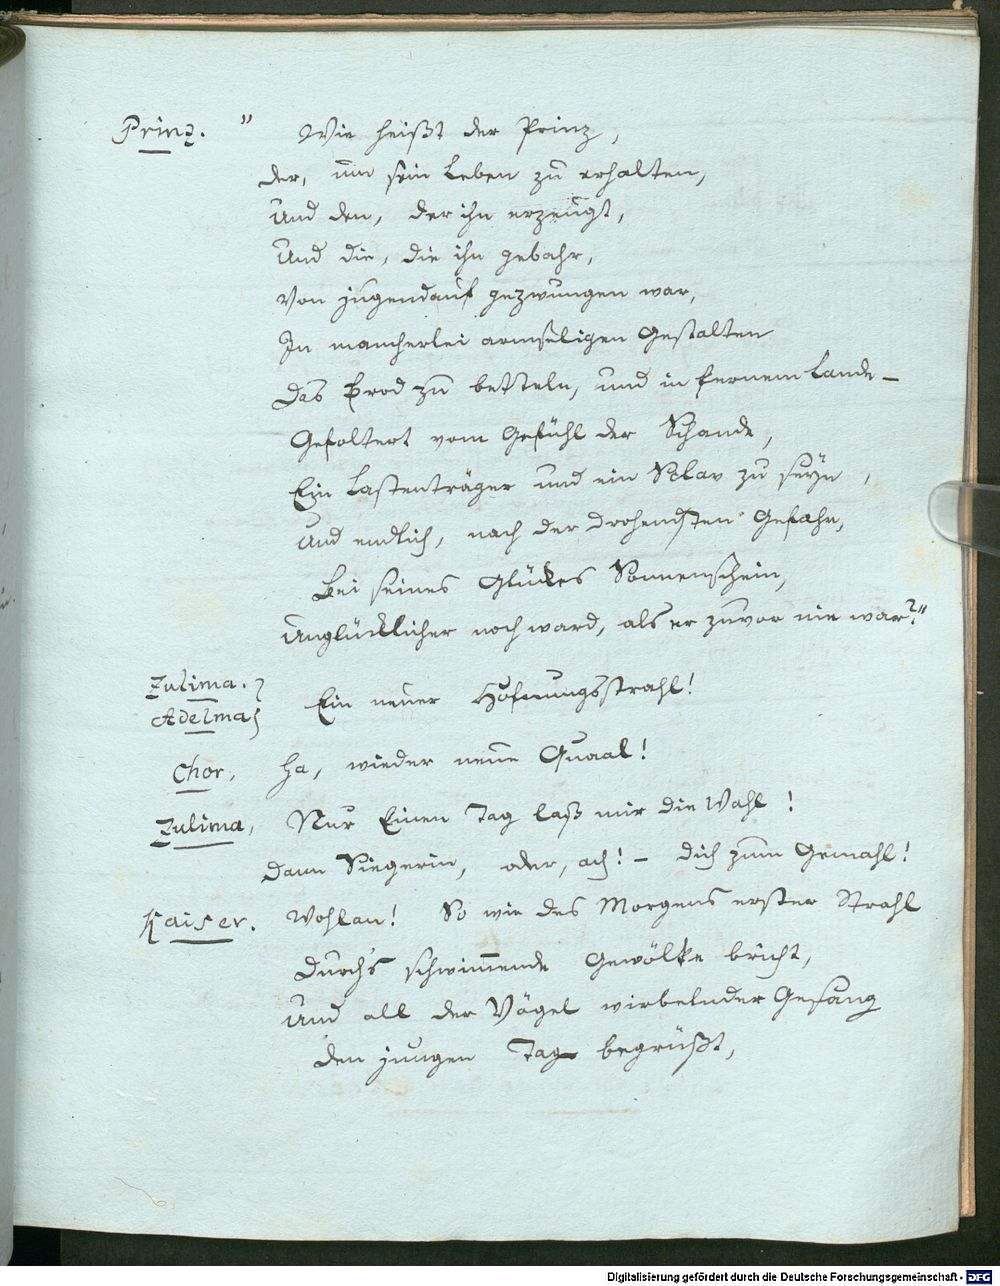 Prinz. " Wie heißt der Prinz,
der, um sein Leben zu erhalten,
Und den, der ihn erzeugt,
Und die, die ihn gebahr,
Von jugendauf gezwungen war,
In mancherlei armseligen Gestalten
Das Brod zu betteln, und in fernem Lande –
Gefoltert vom Gefühl der Schande,
Ein Lastenträger und ein Sclav zu seyn,
Und endlich, nach der drohendsten Gefahr,
Bei seines Glückes Sonnenschein,
Unglücklicher noch ward, als er zuvor nie war?"
Zulima.
Adelma Ein neuer Hofnungsstrahl!
Chor, Ha, wieder neue Quaal!
Zulima, Nur Einen Tag laß mir die Wahl!
Dann Siegerin, oder, ach! – dich zum Gemahl!
Kaiser. Wohlan! So wie des Morgens erster Strahl
Durch's schwim̄ende Gewölke bricht,
Und all der Vögel wirbelnder Gesang
Den jungen Tag begrüßt,
Digitalisierung gefördert durch die Deutsche Forschungsgemeinschaft - DFG